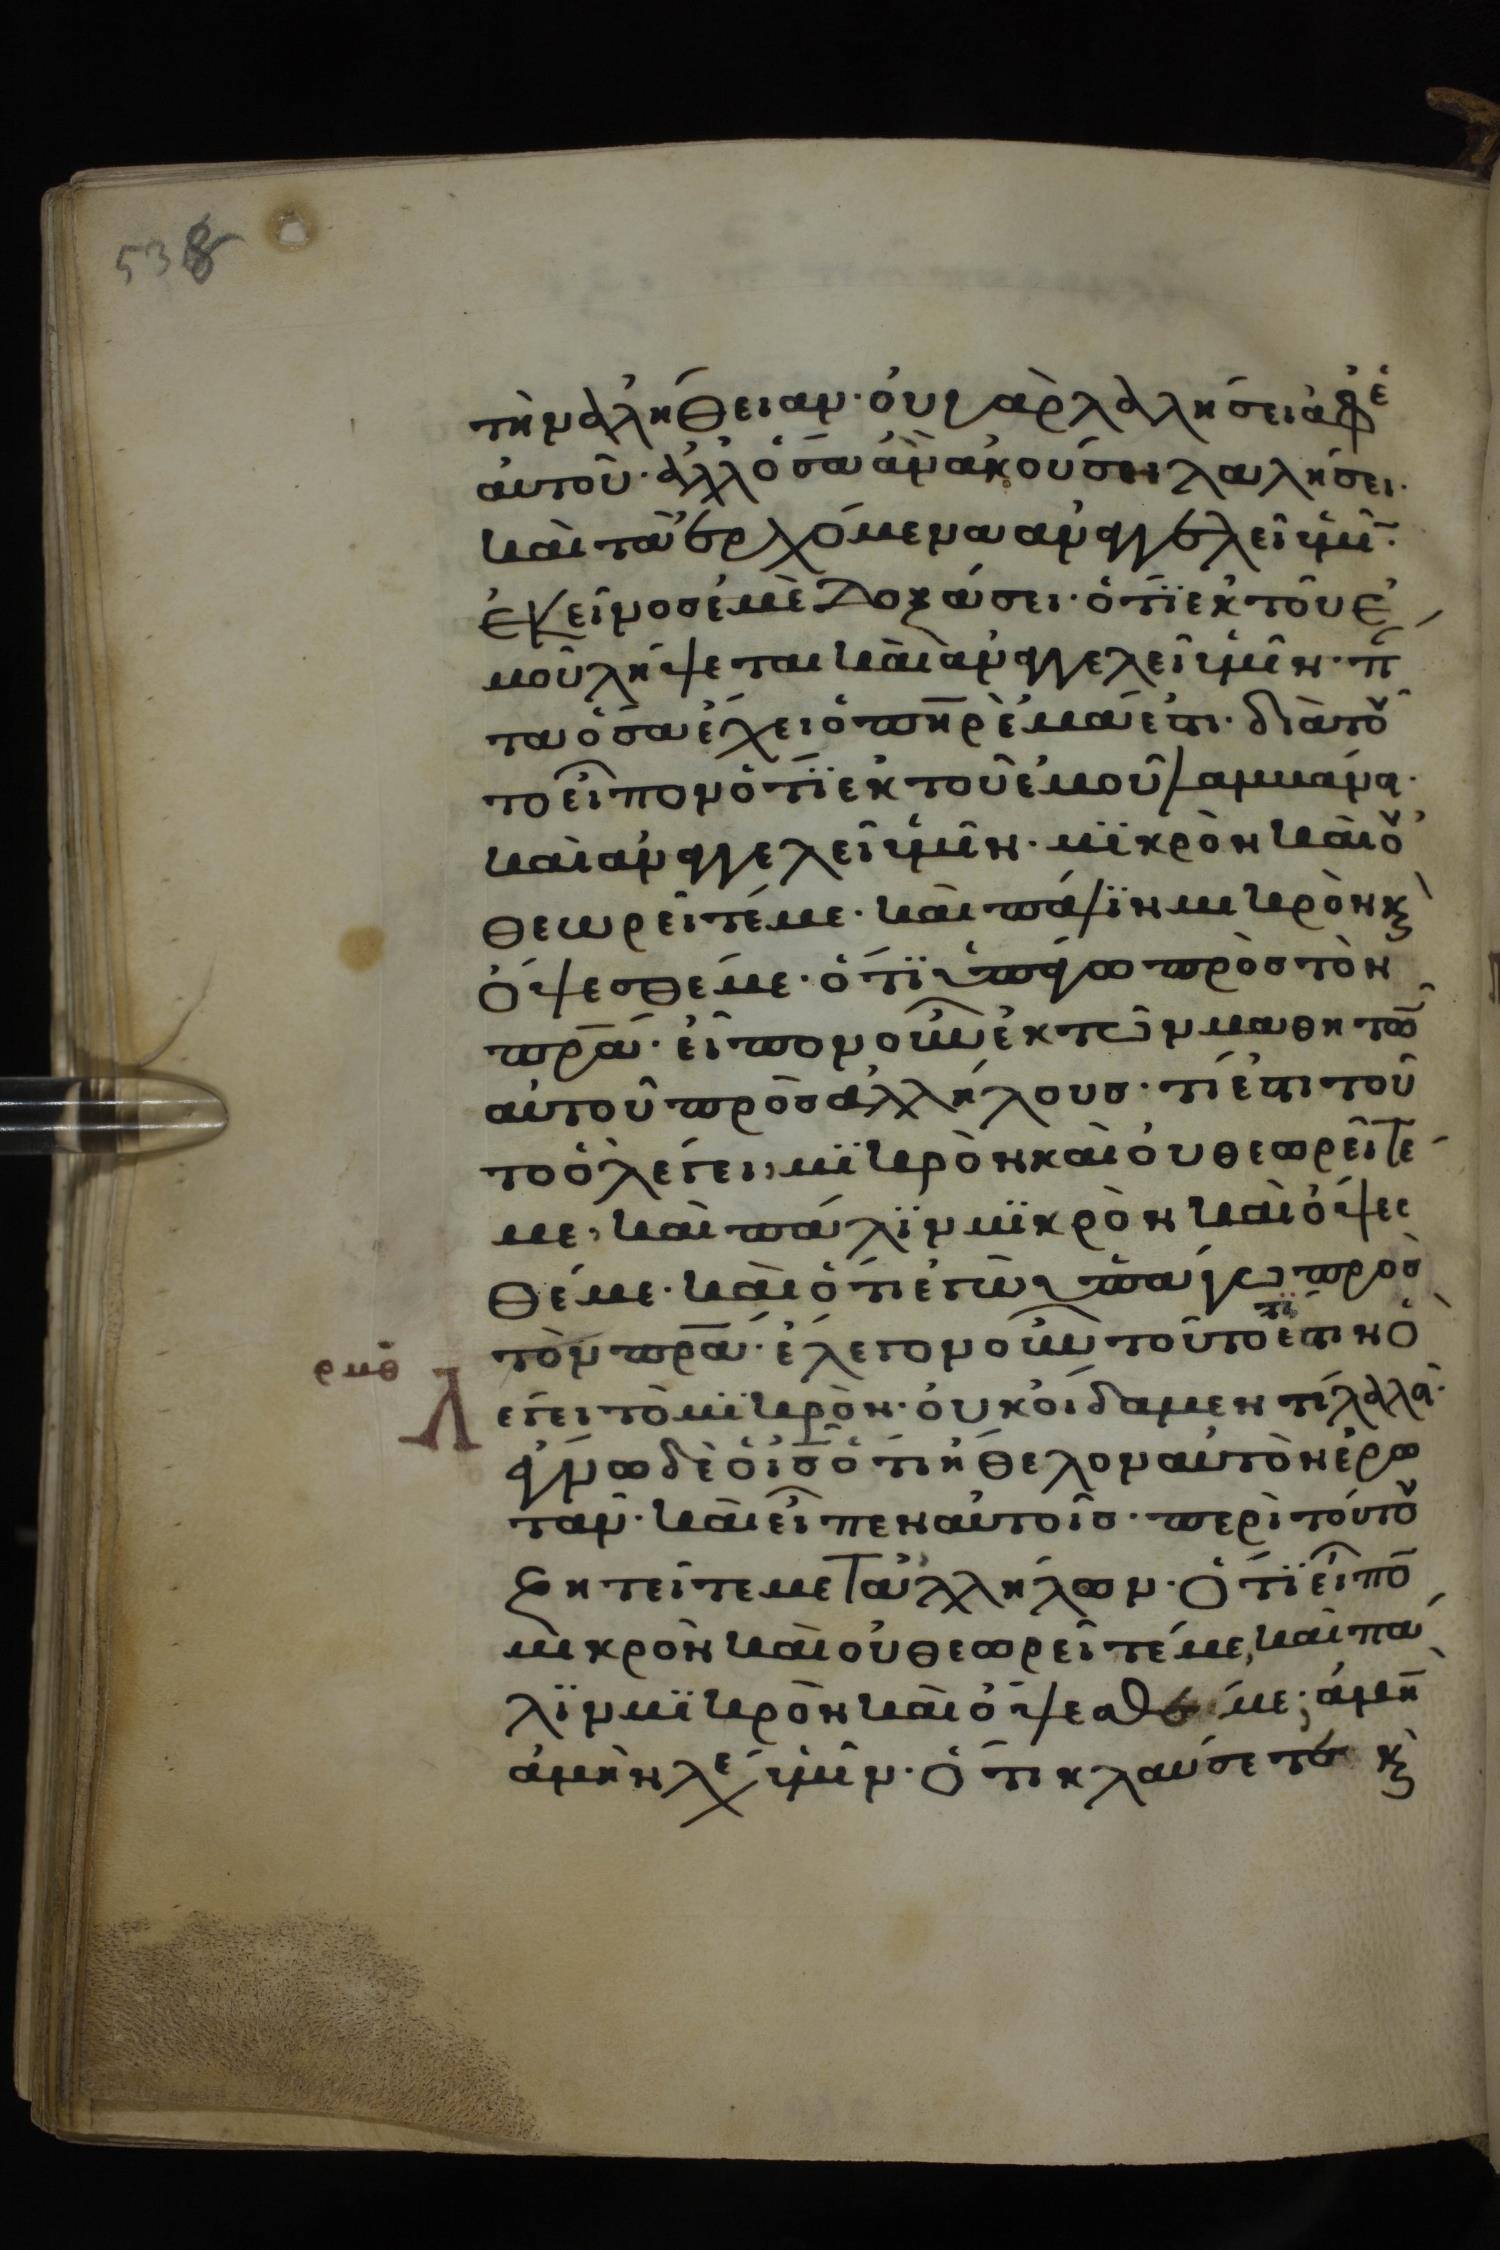 538
τὴν ἀλήθειαν· οὐ γὰρ λαλήσει ἀφ ἑ
αυτοῦ· ἀλλ ὅσα ἂν ἀκούσει λαλήσει·
καὶ τὰ ἐρχόμενα ἀναγγελεῖ ὑμῖ·
ἐκεῖνος ἐμὲ δοξάσει· ὅτι ἐκ τοῦ ἐ
μοῦ λήψεται καὶ ἀναγγελεῖ ὑμῖν· πά
τα ὅσα ἔχει ὁ πηρ ἐμά ἐστι· διὰ τοῦ
το εἶπον ὅτι ἐκ τοῦ ἐμοῦ λαμβάνει·
καὶ ἀναγγελεῖ ὑμῖν· μικρὸν καὶ οὐ
θεωρεῖτέ με· καὶ πάλιν μικρὸν κ
ὄψεσθέ με· ὅτι ὑπάγω πρὸς τὸν
πρα· εἶπον οὖν ἐκ τῶν μαθητῶ
αὐτοῦ πρὸς ἀλλήλους· τί ἐστι τοῦ
το ὃ λέγει, μικρὸν καὶ οὐ θεωρεῖτέ
με, καὶ πάλιν μικρὸν καὶ ὄψεσ
θέ με· καὶ ὅτι ἐγὼ ὑπάγω πρὸς
τὸν πρα· ἔλεγον οὖν τοῦτο τί ἐστιν ὃ
ρμθ λέγει τὸ μικρὸν· οὐκ οἴδαμεν τί λαλεῖ·
ἔγνω δὲ ὁ ις ὅτι ἤθελον αὐτὸν ἐρω
τᾶν· καὶ εἶπεν αὐτοῖς· περὶ τούτου
ζητεῖτε μετ ἀλλήλων· ὅτι εἶπο
μικρὸν καὶ οὐ θεωρεῖτέ με, καὶ πά
λιν μικρὸν καὶ ὄψεσθέ με; ἀμὴ
ἀμὴν λέγω ὑμῖν· ὅτι κλαύσετε κ